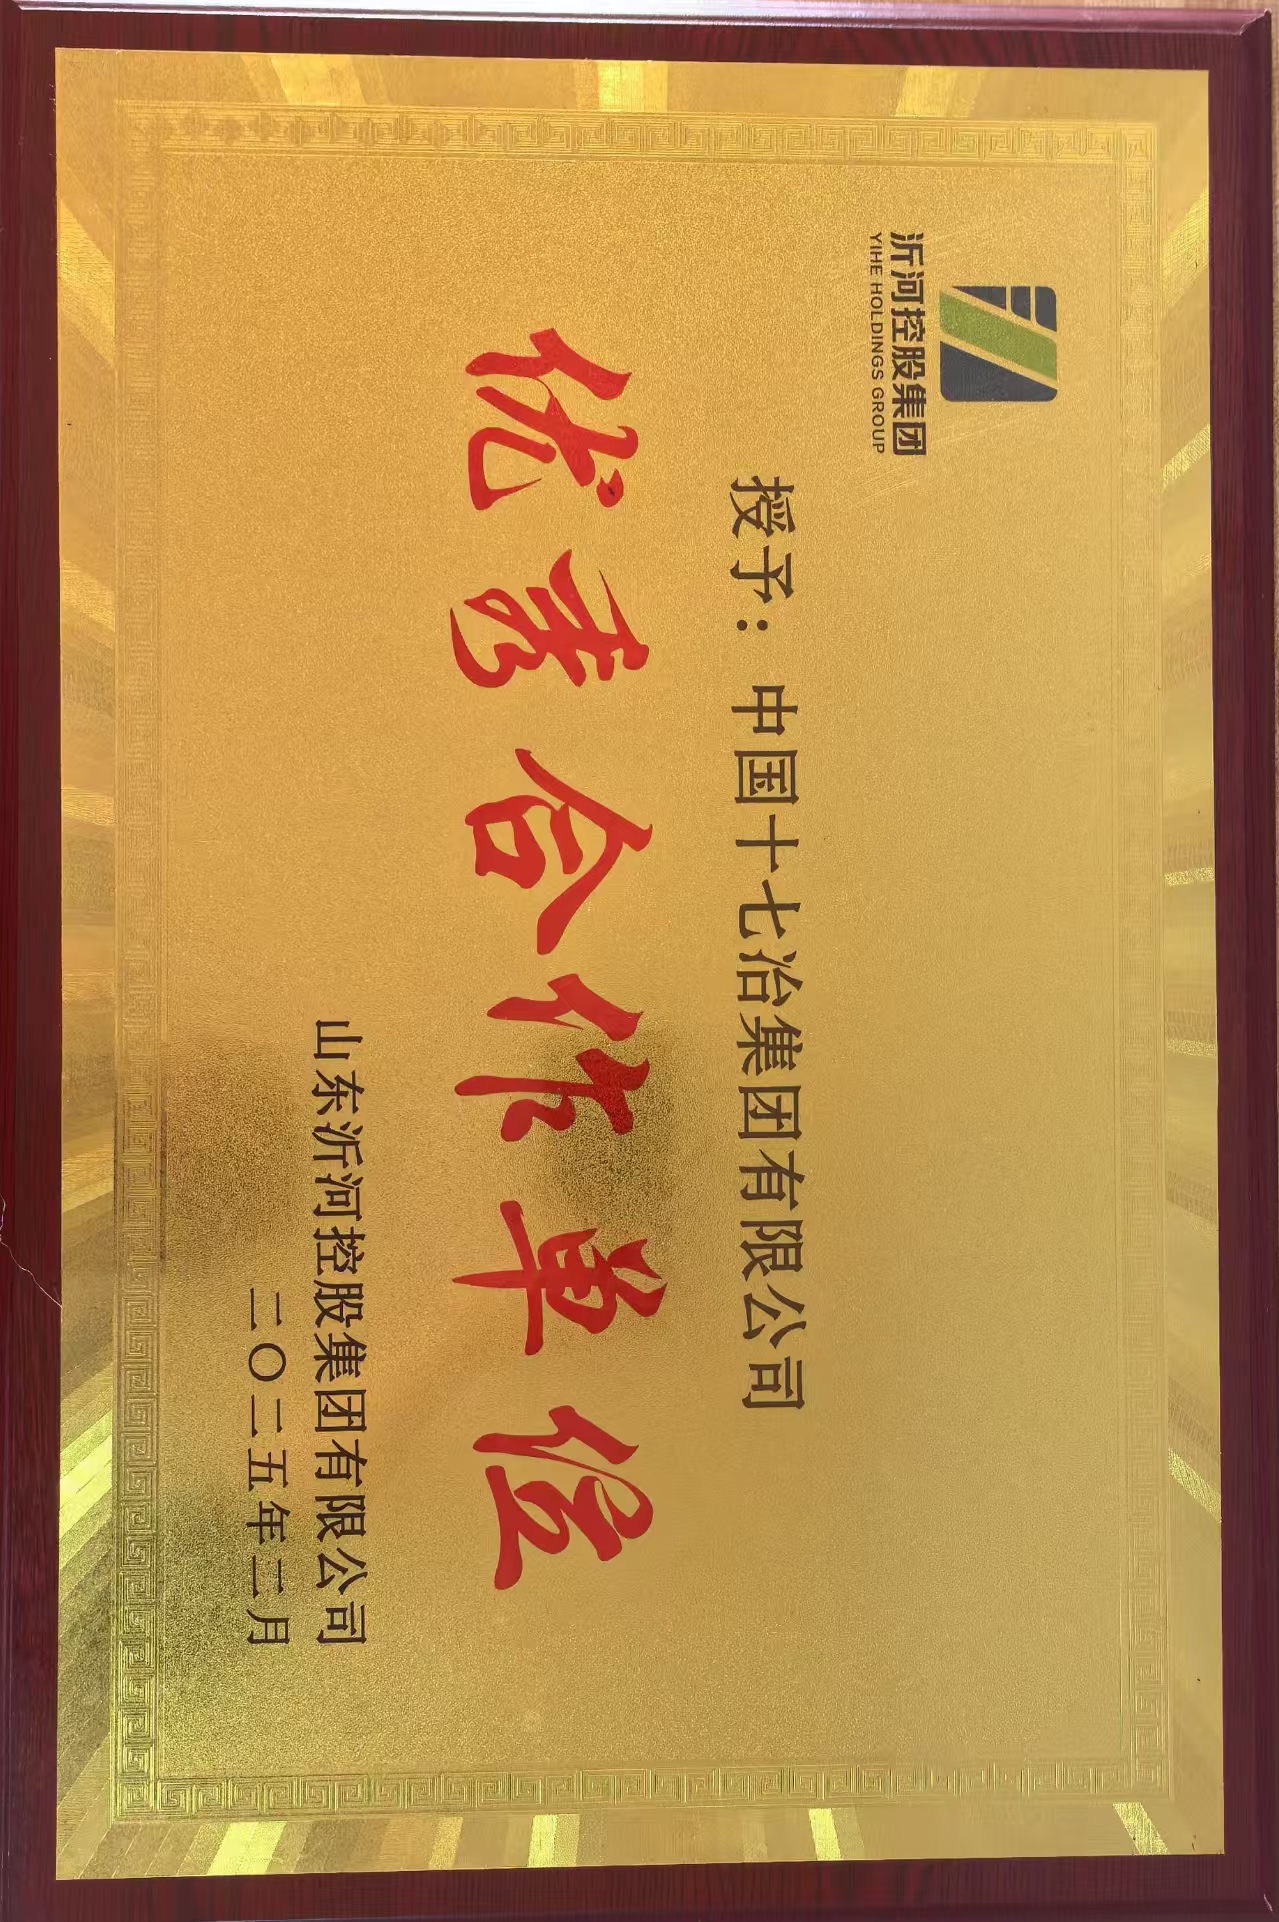 沂河控股集团
YIHE HOLDINGS GROUP
授予：中国十七冶集团有限公司
优秀合作单位
山东沂河控股集团有限公司
二〇二五年三月